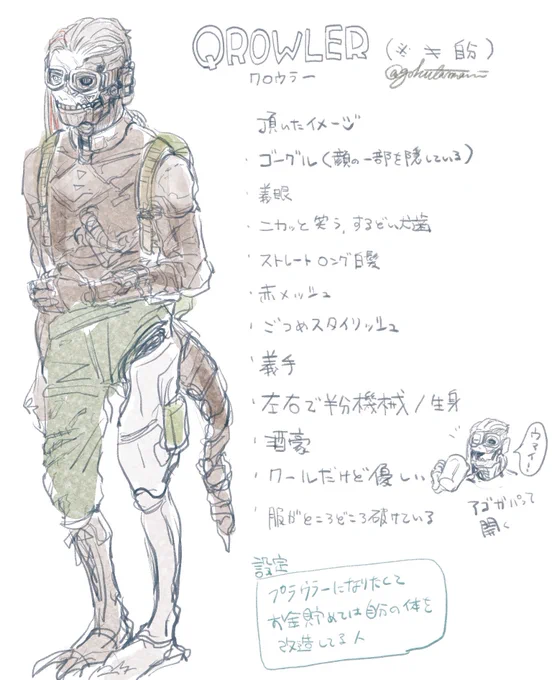 QROWLER (※≠自分)
クロウラー
頂いたイメージ
・ゴーグル(顔の一部を隠している)
・義眼
・ニカッと笑う,するどい犬歯
・ストレートロング白髪
・赤メッシュ
・ごつめスタイリッシュ
・義手
・左右で半分機械/生身
・酒豪
・クールだけど優しい
・服がところどころ破けている
ウマイー
アゴがパカって
開く
設定
プラウラーになりたくて
お金貯めては自分の体を
改造してる人